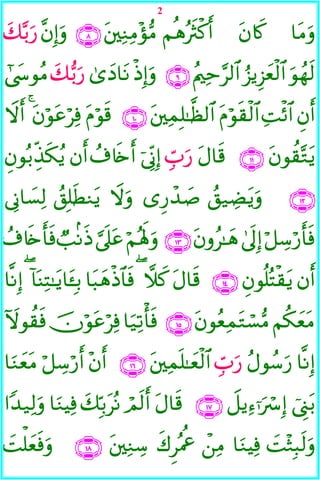 2
وَمَا كَانَ أَكْثَرُهُم مُّؤْمِنِينَ ٨ وَإِنَّ رَبَّكَ
لَهُوَ ٱلْعَزِيزُ ٱلرَّحِيمُ ٩ وَإِذْ نَادَىٰ رَبُّكَ مُوسَىٰٓ
أَنِ ٱئْتِ ٱلْقَوْمَ ٱلظَّـٰلِمِينَ ١٠ قَوْمَ فِرْعَوْنَ ۚ أَلَا
يَتَّقُونَ ١١ قَالَ رَبِّ إِنِّىٓ أَخَافُ أَن يُكَذِّبُونِ
١٢ وَيَضِيقُ صَدْرِى وَلَا يَنطَلِقُ لِسَانِى
فَأَرْسِلْ إِلَىٰ هَـٰرُونَ ١٣ وَلَهُمْ عَلَىَّ ذَنۢبٌ فَأَخَافُ
أَن يَقْتُلُونِ ١٤ قَالَ كَلَّا ۖ فَٱذْهَبَا بِـَٔايَـٰتِنَآ ۖ إِنَّا
مَعَكُم مُّسْتَمِعُونَ ١٥ فَأْتِيَا فِرْعَوْنَ فَقُولَآ
إِنَّا رَسُولُ رَبِّ ٱلْعَـٰلَمِينَ ١٦ أَنْ أَرْسِلْ مَعَنَا
بَنِىٓ إِسْرَٰٓءِيلَ ١٧ قَالَ أَلَمْ نُرَبِّكَ فِينَا وَلِيدًا
وَلَبِثْتَ فِينَا مِنْ عُمُرِكَ سِنِينَ ١٨ وَفَعَلْتَ